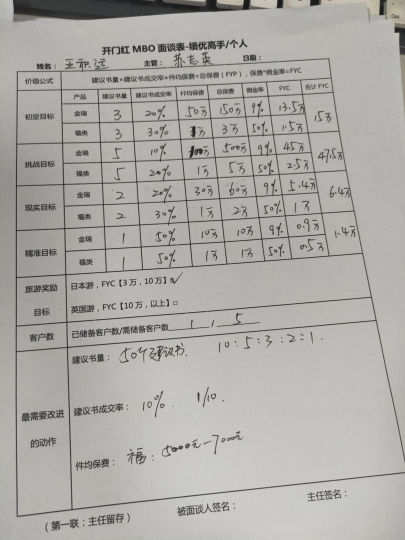 开门红 MBO 面谈表-绩优高手/个人
姓名： 主管： 苏志英 日期：
价值公式 建议书量×建议书成交率×件均保费=总保费（FYP），保费*佣金率=FYC
产品 建议书量 建议书成交率 件均保费 总保费 佣金率 FYC 合计 FYC
初定目标 金瑞 3 20% 50万 150万 9% 13.5万 15万
福类 3 30% 1万 3万 50% 1.5万
挑战目标 金瑞 5 10% 100万 500万 9% 45万 47.5万
福类 5 20% 1万 5万 50% 2.5万
现实目标 金瑞 2 20% 30万 60万 9% 5.4万 6.4万
福类 2 30% 1万 2万 50% 1万
精准目标 金瑞 1 50% 10万 10万 9% 0.9万 1.4万
福类 1 50% 1万 1万 50% 0.5万
旅游奖励 日本游，FYC【3 万，10 万】□√
目标 英国游，FYC【10 万，以上】□
客户数 已储备客户数/需储备客户数 1 / 5
最需要改进
的动作
建议书量： 50个建议书. 10:5:3:2=1.
建议书成交率： 10%. 1/10
件均保费： 福：5000元-7000元
（第一联：主任留存） 被面谈人签名： 主任签名：